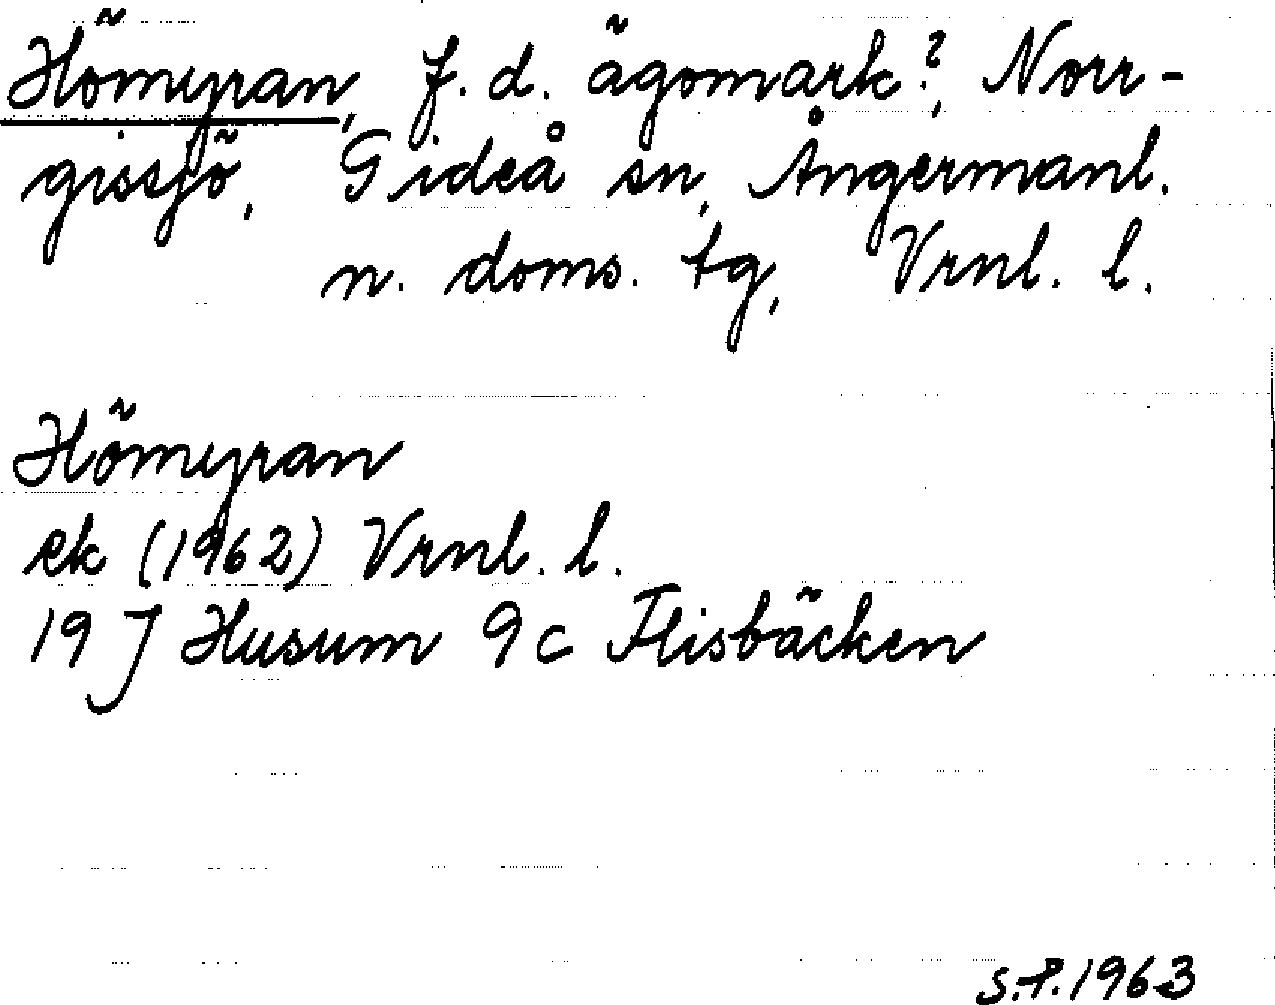 Hömyran, f.d. ägomark?, Norr-
gissjö, Gideå sn, Ångermanl.
n. doms. tg, Vrnl. l.
Hömyran
ek (1962) Vrnl. l.
19 J Husum 9c Flisbäcken
S.P. 1963